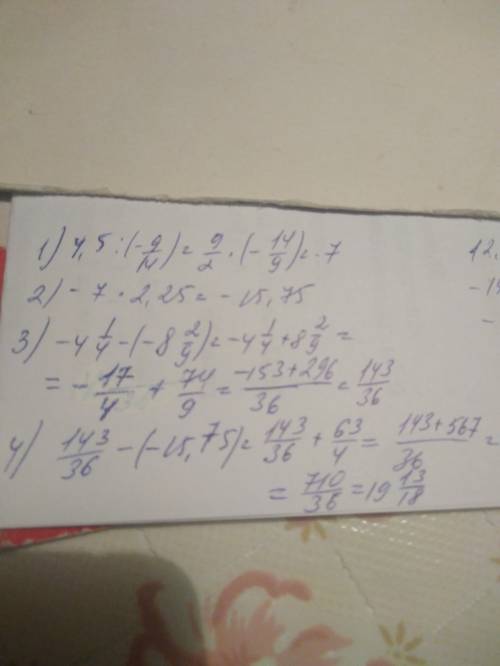 1) 4,5 : (-9/14) = 9/2 · (-14/9) = -7
2) -7 · 2,25 = -15,75
3) -4 1/4 - (-8 2/9) = -4 1/4 + 8 2/9 =
= -17/4 + 74/9 = -153+296/36 = 143/36
4) 143/36 - (-15,75) = 143/36 + 63/4 = 143+567/36 =
= 710/36 = 19 13/18
12,